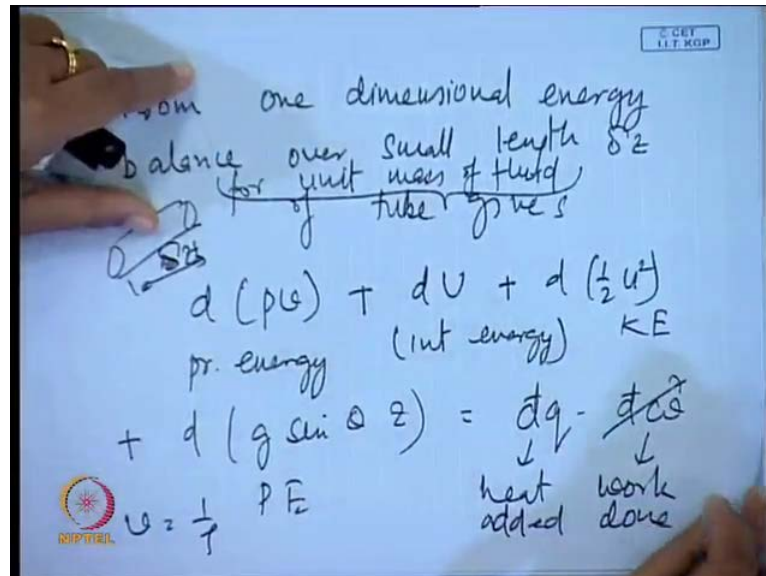 © CET
I.I.T. KGP
from one dimensional energy
balance over small length δz
(for unit mass of fluid)
of tube gives
δz
d (pv) + dU + d (½ u²)
pr. energy (int energy) KE
+ d (g sin θ z) = đq - đω
PE heat added work done
v = 1/ρ
NPTEL